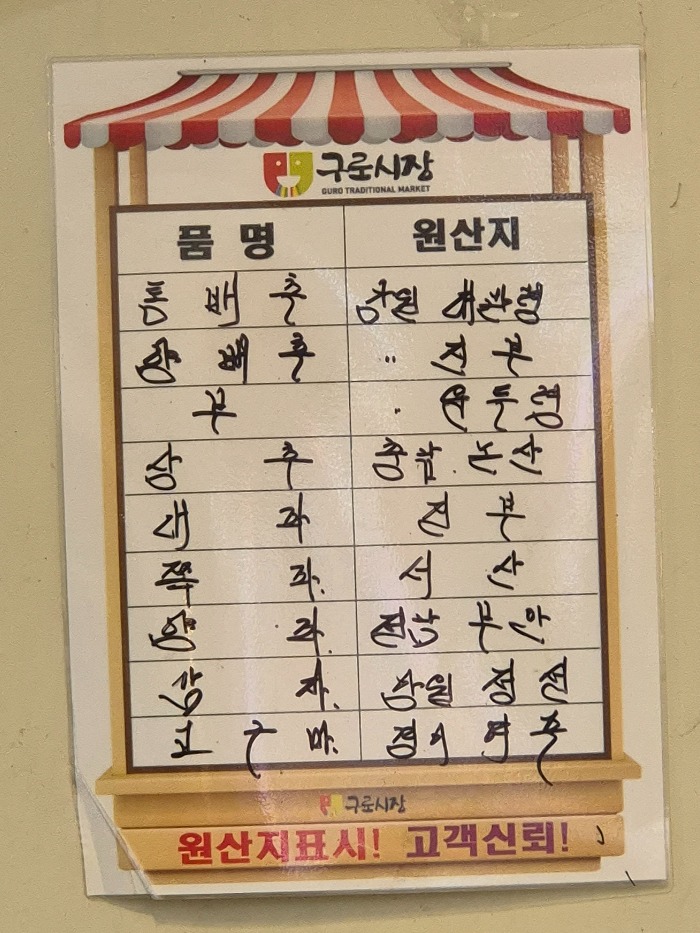 구로시장
GURO TRADITIONAL MARKET
품명 원산지
통배추 강원 대관령
양배추 〃 진부
무
상추 충남 논산
대파 진부
쪽파. 서산
양파. 전남 무안
감자. 강원 정선
고구마.
구로시장
원산지표시! 고객신뢰!